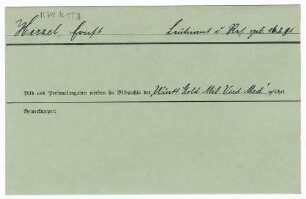 Hirzel, Ernst Leutnant d. Res. geb. 16.2.91
Bild und Personalangaben werden im Bildarchiv der "Württ Gold. Mil. Verd. Med." geführt.
Bemerkungen: